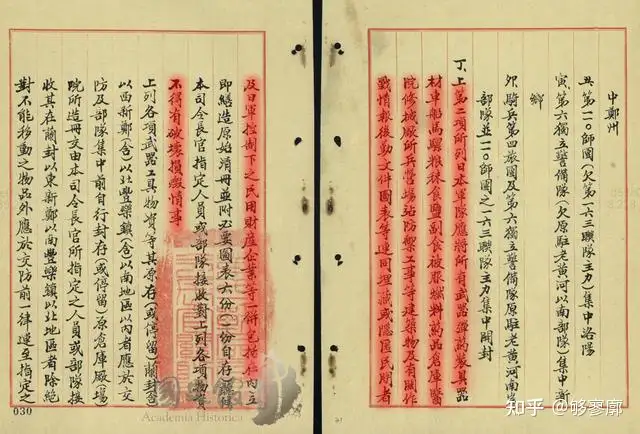 中鄭州
丑、第一一〇師團(欠第一六三聯隊主力)集中洛陽
寅、第六獨立警備隊(欠原駐老黃河以南部隊)集中新
鄉
卯、騎兵第四旅團及第六獨立警備隊原駐老黃河南岸
部隊並一一〇師團之一六三聯隊主力集中開封
丁、上第二項所列日本軍隊應將所有武器彈藥裝具器
材車船馬騾粮秣食鹽副食被服燃料藥品倉庫醫
院修械廠所兵營場站防禦工事等建築物及有關作
戰情報後勤文件圖表等連同埋藏或隱匿民朋者
及日軍控制下之民用財產企業等一併包括在內立
即繕造原始清冊並附必要圖表六份(一份自存)
本司令長官指定人員或部隊接收對上列各項物資
不得有破壞損燬情事
上列各項武器工具物資等其原存(或停留)蘭封(含)
以西新鄭(含)以北豐樂鎮(含)以南地區以內者應於交
防及部隊集中前自行封存(或停留)原倉庫廠(場)
院所造冊交由本司令長官所指定之人員或部隊接
收其在蘭封以東新鄭以南豐樂鎮以北地區者除絕
對不能移動之物品外應於交防前一律運至指定之
030
Academia Historica
知乎 @够廖廓